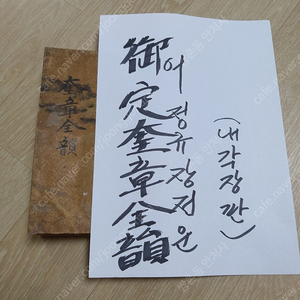 奎章全韻
御定奎章全韻
어정규장전운
(내각장판)